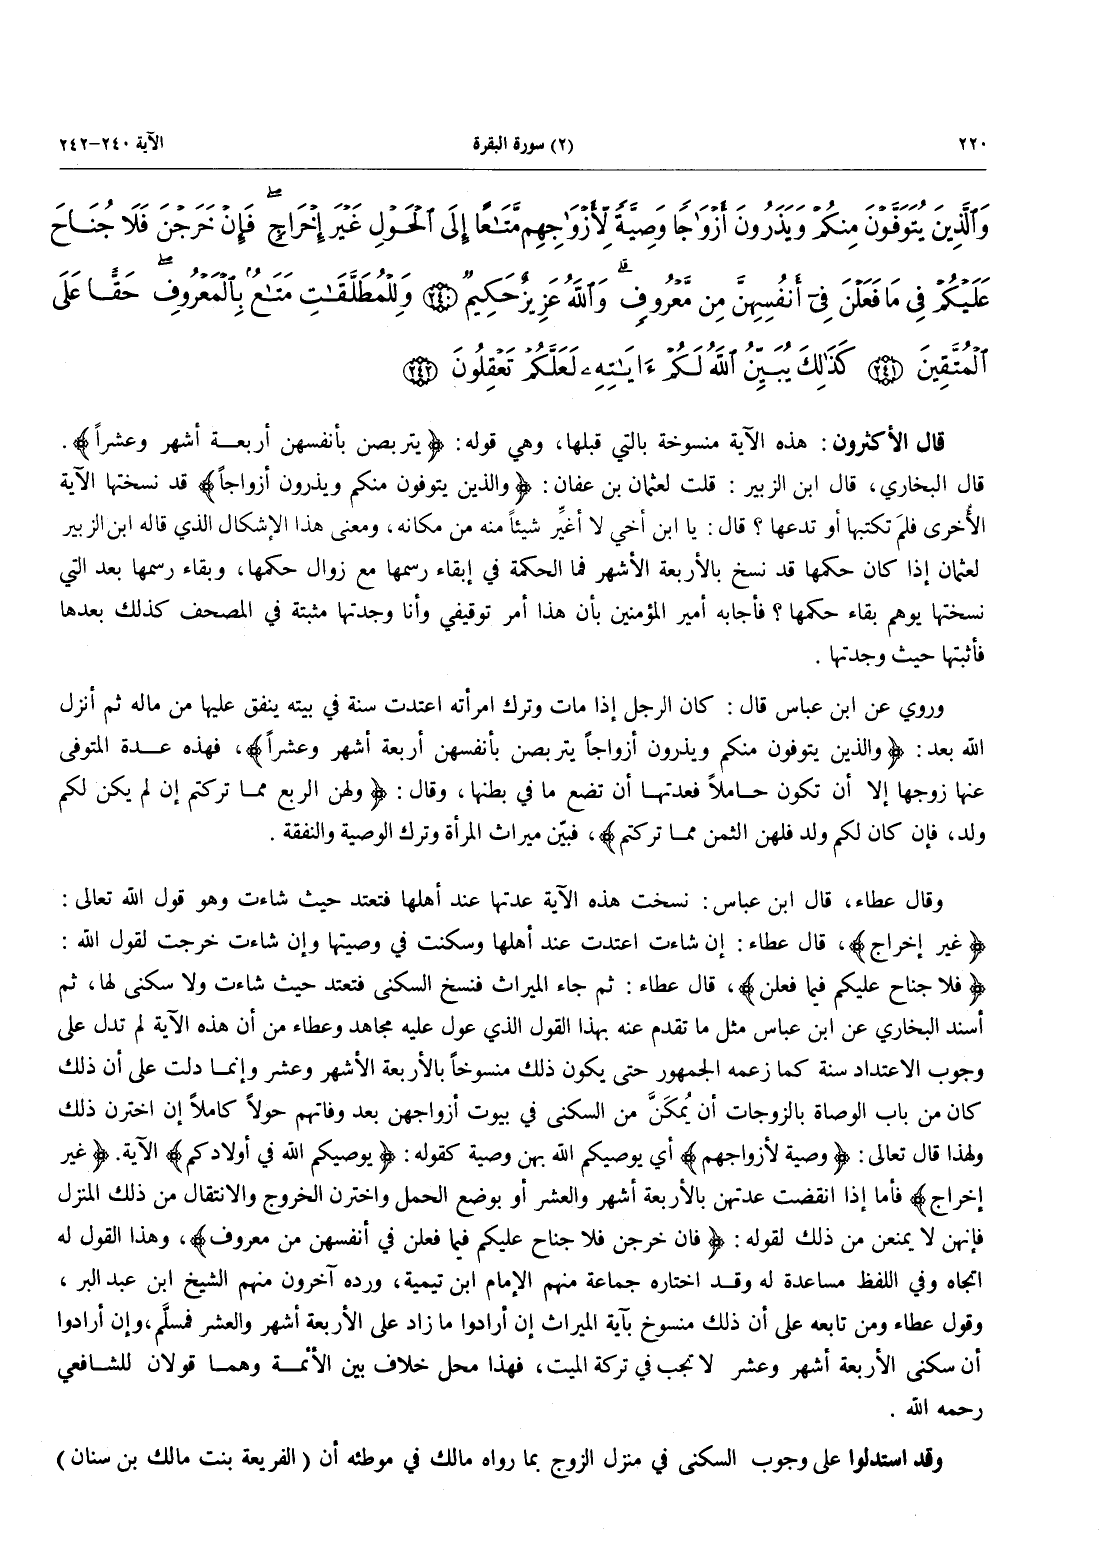 ٢٢٠ (٢) سورة البقرة الآية ٢٤٠-٢٤٢
وَٱلَّذِينَ يُتَوَفَّوْنَ مِنكُمْ وَيَذَرُونَ أَزْوَٰجًا وَصِيَّةً لِّأَزْوَٰجِهِم مَّتَٰعًا إِلَى ٱلْحَوْلِ غَيْرَ إِخْرَاجٍۢ ۖ فَإِنْ خَرَجْنَ فَلَا جُنَاحَ
عَلَيْكُمْ فِى مَا فَعَلْنَ فِىٓ أَنفُسِهِنَّ مِن مَّعْرُوفٍۢ ۗ وَٱللَّهُ عَزِيزٌ حَكِيمٌ ﴿٢٤٠﴾ وَلِلْمُطَلَّقَٰتِ مَتَٰعٌۢ بِٱلْمَعْرُوفِ ۖ حَقًّا عَلَى
ٱلْمُتَّقِينَ ﴿٢٤١﴾ كَذَٰلِكَ يُبَيِّنُ ٱللَّهُ لَكُمْ ءَايَٰتِهِۦ لَعَلَّكُمْ تَعْقِلُونَ ﴿٢٤٢﴾
قال الأكثرون : هذه الآية منسوخة بالتي قبلها، وهي قوله: ﴿يتربصن بأنفسهن أربعة أشهر وعشراً﴾.
قال البخاري، قال ابن الزبير : قلت لعثمان بن عفان: ﴿والذين يتوفون منكم ويذرون أزواجاً﴾ قد نسختها الآية
الأُخرى فلمَ تكتبها أو تدعها ؟ قال: يا ابن أخي لا أغيِّر شيئاً منه من مكانه، ومعنى هذا الإشكال الذي قاله ابن الزبير
لعثمان إذا كان حكمها قد نسخ بالأربعة الأشهر فما الحكمة في إبقاء رسمها مع زوال حكمها، وبقاء رسمها بعد التي
نسختها يوهم بقاء حكمها ؟ فأجابه أمير المؤمنين بأن هذا أمر توقيفي وأنا وجدتها مثبتة في المصحف كذلك بعدها
فأثبتها حيث وجدتها .
وروي عن ابن عباس قال : كان الرجل إذا مات وترك امرأته اعتدت سنة في بيته ينفق عليها من ماله ثم أنزل
الله بعد: ﴿والذين يتوفون منكم ويذرون أزواجاً يتربصن بأنفسهن أربعة أشهر وعشراً﴾، فهذه عدة المتوفى
عنها زوجها إلا أن تكون حاملاً فعدتها أن تضع ما في بطنها، وقال: ﴿ولهن الربع مما تركتم إن لم يكن لكم
ولد، فإن كان لكم ولد فلهن الثمن مما تركتم﴾، فبيّن ميراث المرأة وترك الوصية والنفقة .
وقال عطاء، قال ابن عباس: نسخت هذه الآية عدتها عند أهلها فتعتد حيث شاءت وهو قول الله تعالى :
﴿غير إخراج﴾، قال عطاء: إن شاءت اعتدت عند أهلها وسكنت في وصيتها وإن شاءت خرجت لقول الله :
﴿فلا جناح عليكم فيما فعلن﴾، قال عطاء : ثم جاء الميراث فنسخ السكنى فتعتد حيث شاءت ولا سكنى لها، ثم
أسند البخاري عن ابن عباس مثل ما تقدم عنه بهذا القول الذي عول عليه مجاهد وعطاء من أن هذه الآية لم تدل على
وجوب الاعتداد سنة كما زعمه الجمهور حتى يكون ذلك منسوخاً بالأربعة الأشهر وعشر وإنما دلت على أن ذلك
كان من باب الوصاة بالزوجات أن يُمكَنَّ من السكنى في بيوت أزواجهن بعد وفاتهم حولاً كاملاً إن اخترن ذلك
ولهذا قال تعالى: ﴿وصية لأزواجهم﴾ أي يوصيكم الله بهن وصية كقوله: ﴿يوصيكم الله في أولادكم﴾ الآية. ﴿غير
إخراج﴾ فأما إذا انقضت عدتهن بالأربعة أشهر والعشر أو بوضع الحمل واخترن الخروج والانتقال من ذلك المنزل
فإنهن لا يمنعن من ذلك لقوله: ﴿فان خرجن فلا جناح عليكم فيما فعلن في أنفسهن من معروف﴾، وهذا القول له
اتجاه وفي اللفظ مساعدة له وقد اختاره جماعة منهم الإمام ابن تيمية، ورده آخرون منهم الشيخ ابن عبد البر ،
وقول عطاء ومن تابعه على أن ذلك منسوخ بآية الميراث إن أرادوا ما زاد على الأربعة أشهر والعشر فمسلَّم، وإن أرادوا
أن سكنى الأربعة أشهر وعشر لا تجب في تركة الميت، فهذا محل خلاف بين الأئمة وهما قولان للشافعي
رحمه الله .
وقد استدلوا على وجوب السكنى في منزل الزوج بما رواه مالك في موطئه أن ( الفريعة بنت مالك بن سنان )